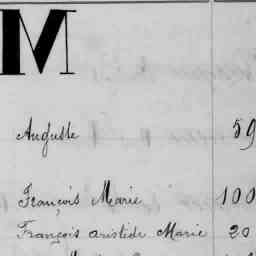 M
Auguste 59
François Marie 100
François Aristide Marie 20